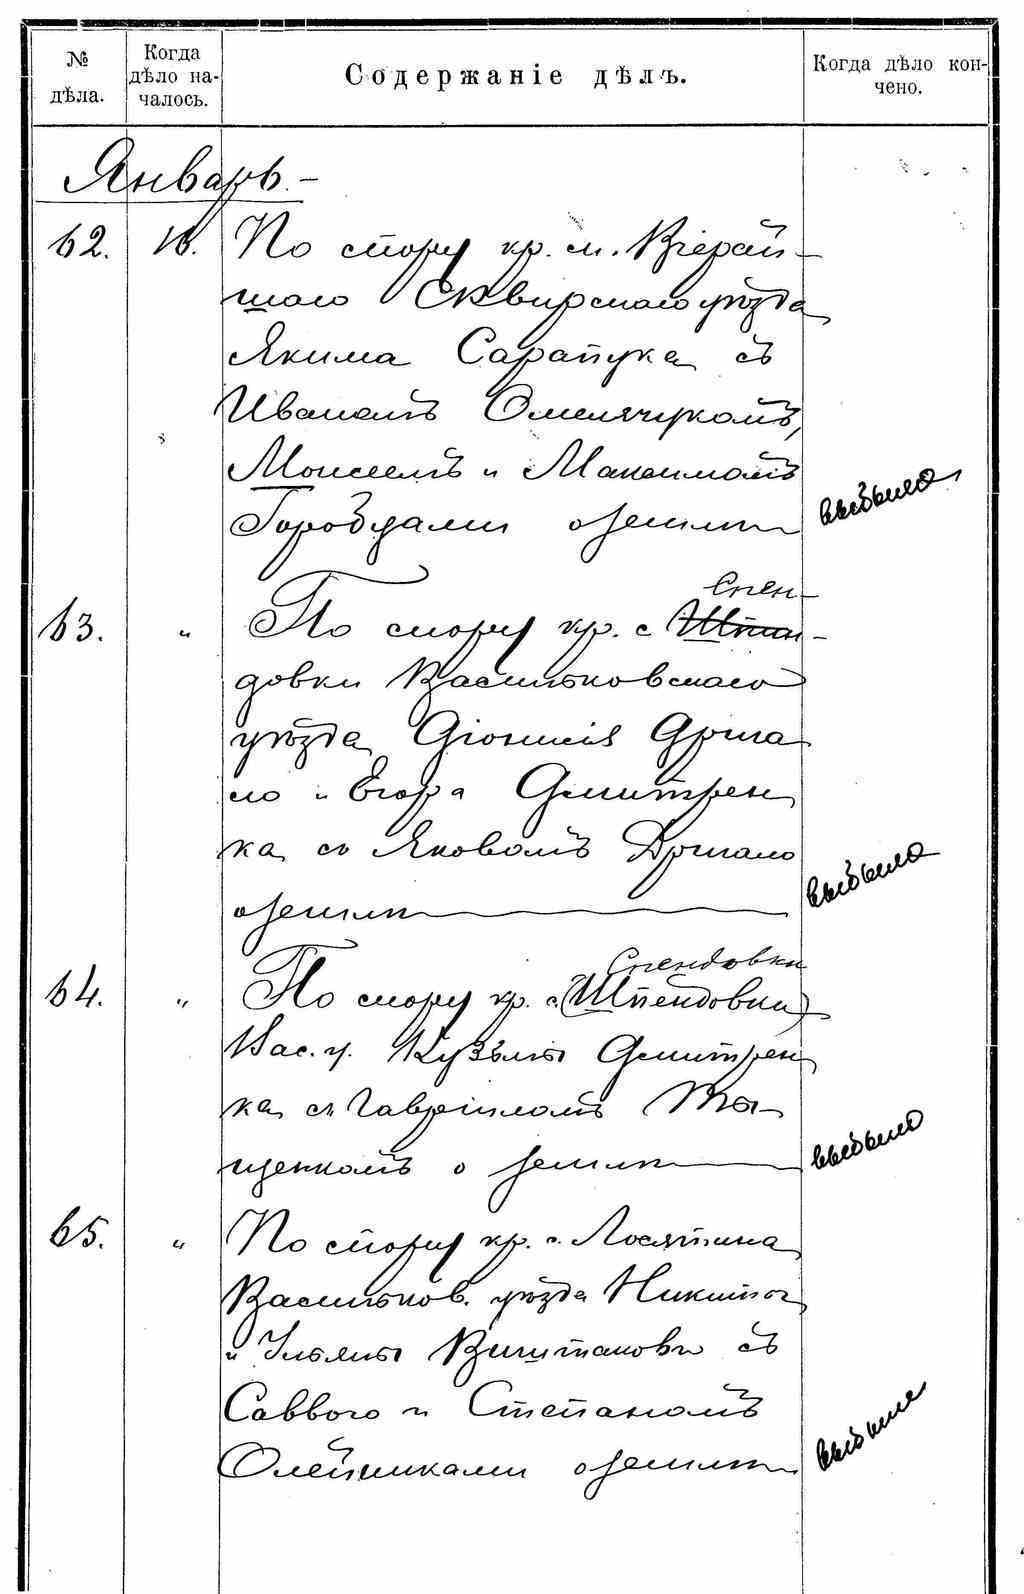 № дѣла.
Когда дѣло на-чалось.
Содержаніе дѣлъ.
Когда дѣло кон-чено.
Январь. –
62. 18. По спору кр. м.
Сквирскаго уѣзда
Якима Сарапука съ
Иваномъ Омелячукомъ,
Моисеемъ и Максимомъ
Городцами о землѣ
выбыло
Спен-
63. " По спору кр. с. Шпен-
довки Васильковскаго
уѣзда Діонисія Дрыга
ло и Егора Дмитрен
ка съ Яковомъ Дрыгало
о землѣ
выбыло
Спендовки
64. " По спору кр. с. (Шпендовки)
Вас. у. Кузьмы Дмитрен
ка съ Гавріиломъ
щенкомъ о землѣ
выбыло
65. " По спору кр. с. Лосятина
Васильков. уѣзда Никиты
и Ульяны съ
Саввою и Степаномъ
Олейниками о землѣ
выбыло